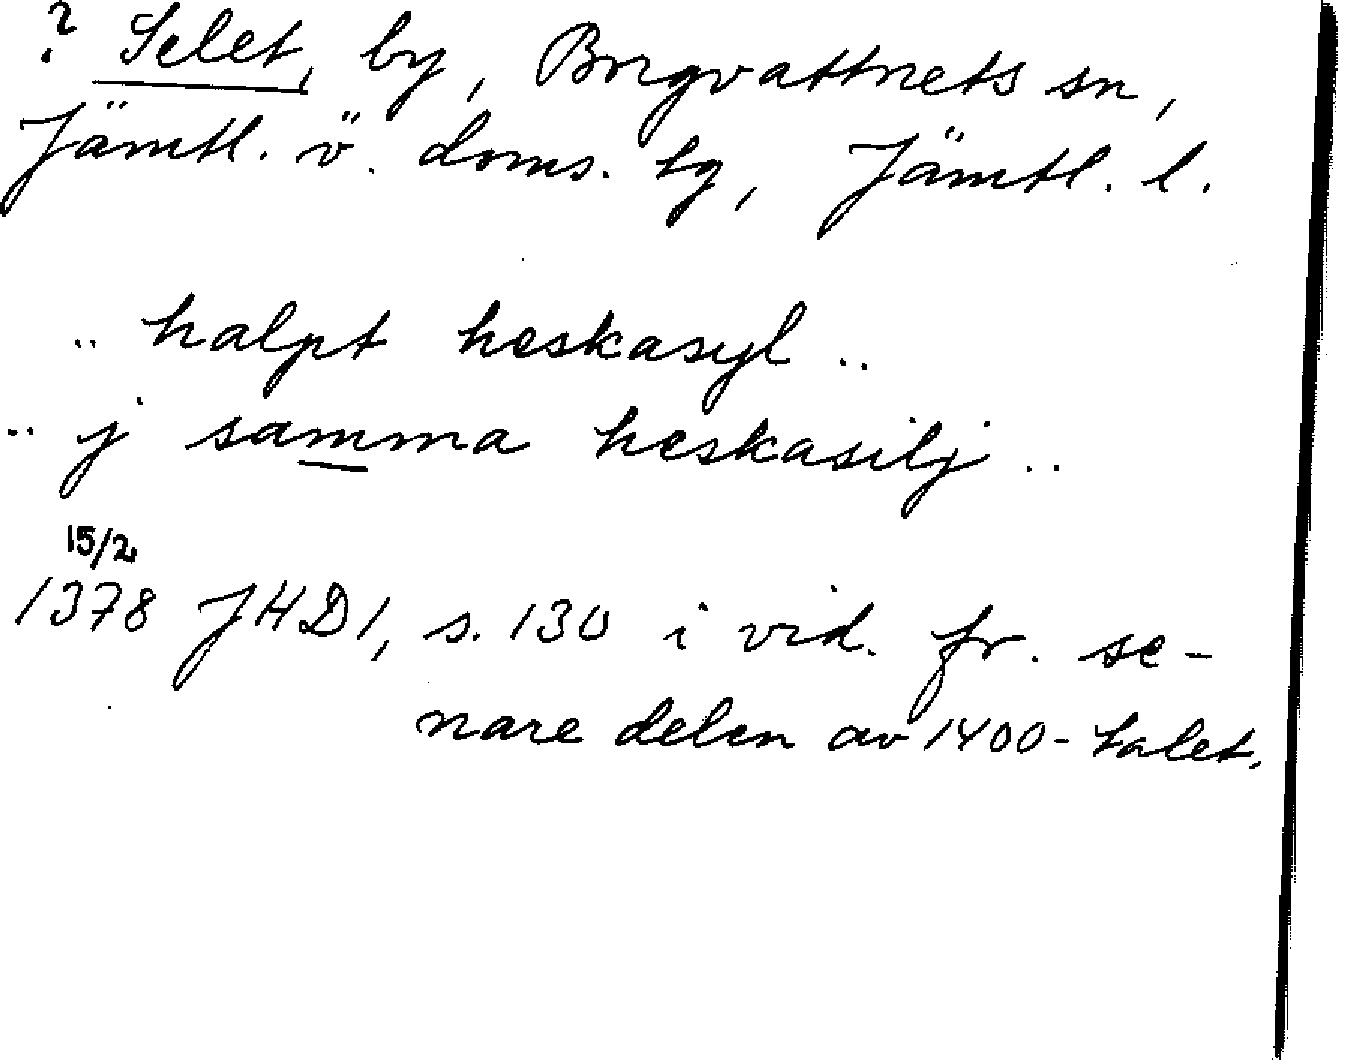 ? Selet, by, Borgvattnets sn,
Jämtl. ö. doms. tg, Jämtl. l.
.. halpt heskasyl ..
.. j samma heskasilj ..
15/2
1378 JHD1, s. 130 i vid. fr. se-
nare delen av 1400-talet.